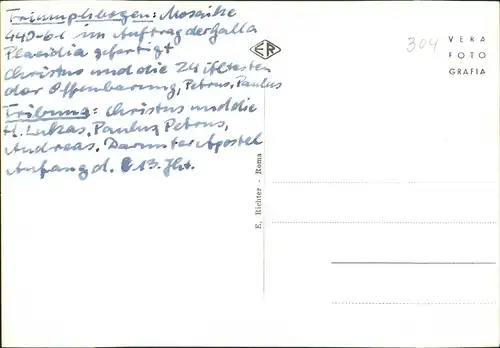 Triumphbogen: Mosaike
440-61 im Auftrag der Galla
Placidia gefertigt
Christus und die 24 Ältesten
der Offenbarung, Petrus, Paulus
Tribuna: Christus und die
H. Lukas, Paulus, Petrus,
Andreas. Darunter Apostel
Anfang d. 13. Jht.
ER
E. Richter - Roma
304
VERA
FOTO
GRAFIA